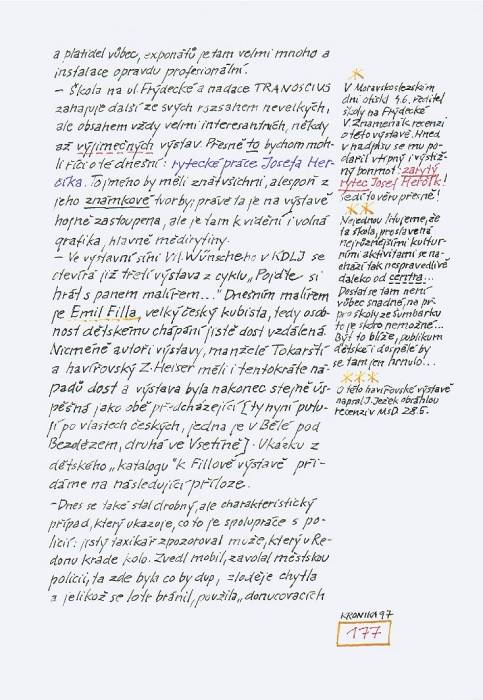 a platidel vůbec, exponátů je tam velmi mnoho a
instalace opravdu profesionální.
— Škola na ul. Frýdecké a nadace TRANOSCIUS
zahajuje další ze svých rozsahem nevelkých,
ale obsahem vždy velmi interesantních, někdy
až výjimečných výstav. Přesně to bychom moh-
li říci o té dnešní: rytecké práce Josefa Her-
číka. To jméno by měli znát všichni, alespoň z
jeho známkové tvorby; práve ta je na výstavě
hojně zastoupena, ale je tam k vidění i volná
grafika, hlavně mědirytiny.
— Ve výstavní síni Vil. Wünscheho v KDLJ se
otevírá již třetí výstava z cyklu „Pojďte si
hrát s panem malířem..." Dnešním malířem
je Emil Filla, velký český kubista, tedy osob-
nost dětskému chápání jistě dost vzdálená.
Nicméně autoři výstavy, manželé Tokarští
a havířovský Z. Heiser měli i tentokráte ná-
padů dost a výstava byla nakonec stejně ús-
pěšná jako obě předcházející [ty nyní putu-
jí po vlastech českých, jedna je v Bělé pod
Bezdězem, druhá ve Vsetíně]. Ukázku z
dětského „katalogu" k Fillově výstavě při-
dáme na následující příloze.
— Dnes se také stal drobný, ale charakteristický
případ, který ukazuje, co to je spolupráce s po-
licií: jistý taxikář zpozoroval muže, který u Re-
donu krade kolo. Zvedl mobil, zavolal městskou
policii, ta zde byla co by dup, zloděje chytla
a jelikož se lotr bránil, použila „donucovacích
*
V Moravskoslezském
dni otiskl 4.6. ředitel
školy na Frýdecké
V. Znamenáček recenzi
o této výstavě. Hned
v nadpisu se mu po-
dařil vtipný i výstiž-
ný bonmot: zarytý
rytec Josef Herčík!
Sedí to věru přesně!
**
Nejednou litujeme, že
ta škola, proslavená
nejrůznějšími kultur-
ními aktivitami se na-
chází tak nespravedlivě
daleko od centra...
Dostat se tam není
vůbec snadné, na př.
pro školy ze Šumbarku
to je skoro nemožné...
Být to blíže, publikum
dětské i dospělé by
se tam jen hrnulo...
***
O této havířovské výstavě
napsal J. Ježek obsáhlou
recenzi v MSD 28.5.
KRONIKA 97
177